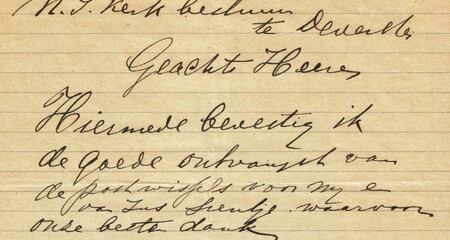 N. I. Kerk bestuur
te Deventer
Geachte Heeren
Hiermede bevestig ik
de goede ontvangst van
de postwissels voor my e
van Jus Sientje. waarvoor
onze besten dank